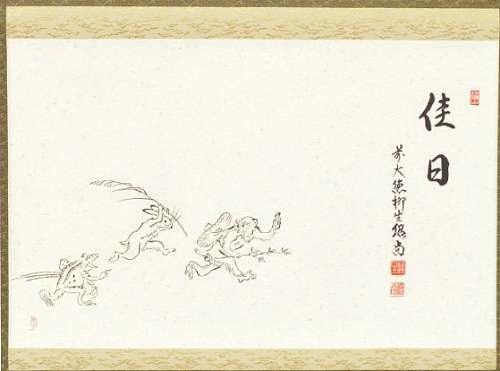 佳日
前大徳柳生紹尚